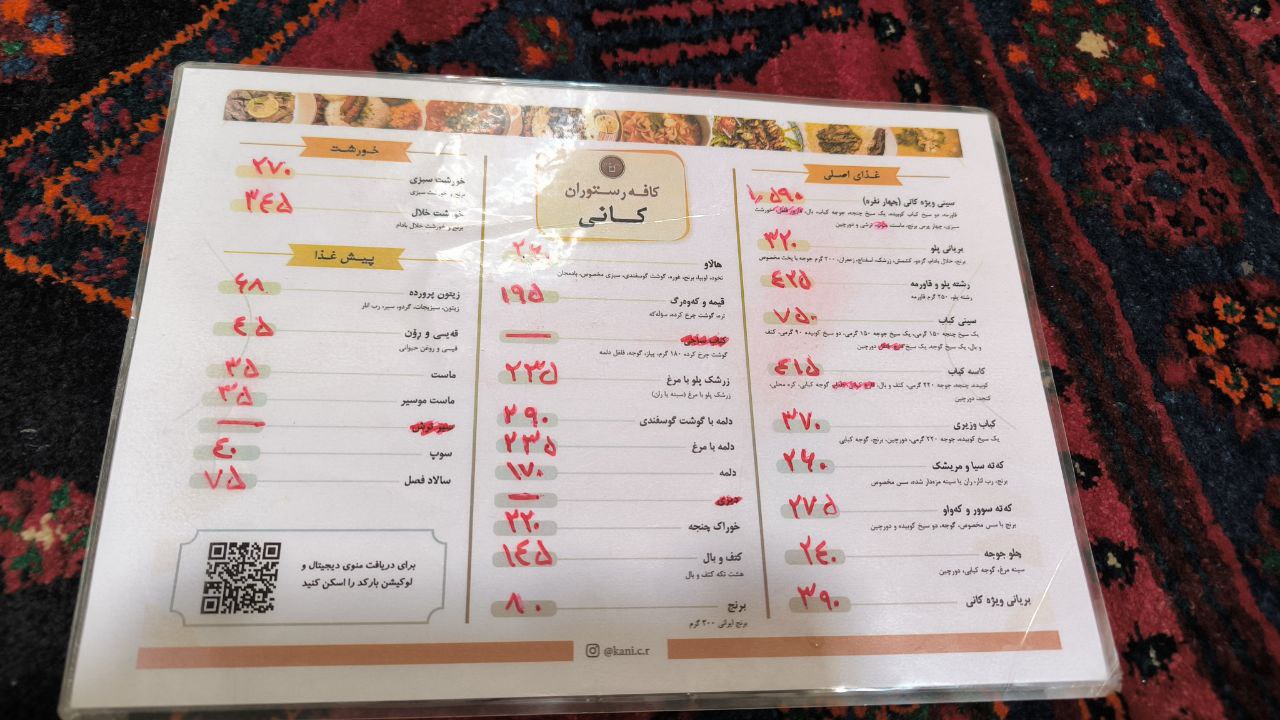 کافه رستوران
کانی
غذای اصلی
سینی ویژه کانی (چهار نفره) ۱/۵۹۰
قاورمه، دو سیخ کباب کوبیده، یک سیخ چنجه، جوجه کباب، بال، خورشت
سبزی، چهار پرس برنج، ماست، ترشی و دورچین
بریانی پلو ۳۲۰
برنج، خلال بادام، گردو، کشمش، زرشک، اسفناج، زعفران، ۲۰۰ گرم جوجه با پخت مخصوص
رشته پلو و قاورمه ۴۲۵
رشته پلو، ۲۵۰ گرم قاورمه
سینی کباب ۷۵۰
یک سیخ چنجه ۱۵۰ گرمی، یک سیخ جوجه ۱۵۰ گرمی، دو سیخ کوبیده ۹۰ گرمی، کتف
و بال، یک سیخ گوجه، یک سیخ دورچین
کاسه کباب ۴۱۵
کوبیده، چنجه، جوجه ۲۲۰ گرمی، کتف و بال، گوجه کبابی، کره محلی،
کنجد، دورچین
کباب وزیری ۳۷۰
یک سیخ کوبیده، جوجه ۲۲۰ گرمی، دورچین، برنج، گوجه کبابی
کەتە سیا و مریشک ۲۶۰
برنج، رب انار، ران یا سینه مزه‌دار شده، سس مخصوص
کەتە سوور و کەواو ۲۷۵
برنج با سس مخصوص، گوجه، دو سیخ کوبیده و دورچین
چلو جوجه ۲۴۰
سینه مرغ، گوجه کبابی، دورچین
بریانی ویژه کانی ۳۹۰
هالاو
نخود، لوبیا، برنج، غوره، گوشت گوسفندی، سبزی مخصوص، بادمجان
قیمه و کەوەرگ ۱۹۵
تره، گوشت چرخ کرده، سوڵەکه
گوشت چرخ کرده ۱۸۰ گرم، پیاز، گوجه، فلفل دلمه
زرشک پلو با مرغ ۲۳۵
زرشک پلو با مرغ (سینه یا ران)
دلمه با گوشت گوسفندی ۲۹۰
دلمه با مرغ ۲۳۵
دلمه ۱۷۰
دیزی
خوراک چنجه ۲۲۰
کتف و بال ۱۴۵
هشت تکه کتف و بال
برنج ۸۰
برنج ایرانی ۳۰۰ گرم
خورشت
خورشت سبزی ۲۷۰
برنج و خورشت سبزی
خورشت خلال ۳۴۵
برنج و خورشت خلال بادام
پیش غذا
زیتون پرورده ۶۸
زیتون، سبزیجات، گردو، سیر، رب انار
قەیسی و رۆن ۴۵
قیسی و روغن حیوانی
ماست ۳۵
ماست موسیر ۳۵
سیر ترش
سوپ ۴۰
سالاد فصل ۷۵
برای دریافت منوی دیجیتال و
لوکیشن بارکد را اسکن کنید
@kani.c.r